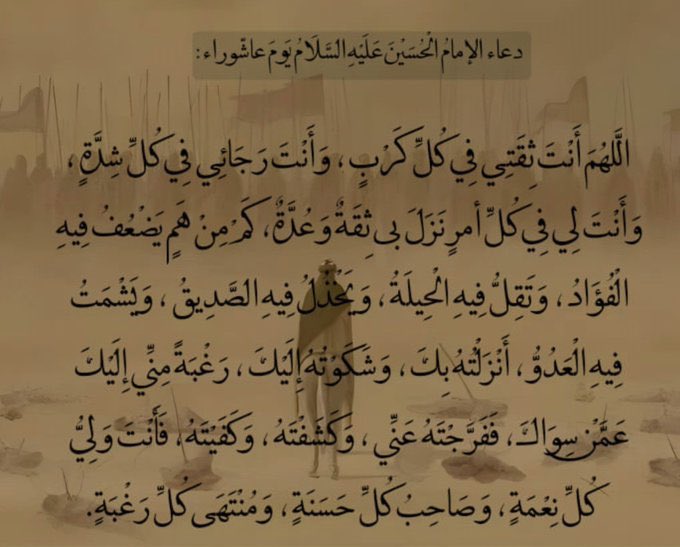 دعاء الإمامُ الْحُسَيْنَ عَلَيْهِ السَّلَامُ يَومَ عاشوراء:
اللَّهُمَ أَنْتَ ثِقَتِي فِي كُلِّ كَرْبٍ، وَأَنْتَ رَجَائِي فِي كُلِّ شِدَّةٍ،
وَأَنْتَ لِي فِي كُلِّ أمرٍ نَزَلَ بي ثِقَةٌ وَعُدَّةٌ، كَمْ مِنْ هَمٍ يَضْعُفُ فِيهِ
الْفُؤَادُ، وَتَقِلُّ فِيهِ الْحِيلَةُ، وَيَخْذُلُ فِيهِ الصَّدِيقُ، وَيَشْمَتُ
فِيهِ الْعَدُوُّ، أَنْزَلْتُهُ بِكَ، وَشَكَوْتُهُ إِلَيْكَ، رَغْبَةً مِنِّي إِلَيْكَ
عَمَّنْ سِوَاكَ، فَفَرَّجْتَهُ عَنِّي، وَكَشَفْتَهُ، وَكَفَيْتَهُ، فَأَنْتَ وَلِيُّ
كُلِّ نِعْمَةٍ، وَصَاحِبُ كُلِّ حَسَنَةٍ، وَمُنْتَهَى كُلِّ رَغْبَةٍ.